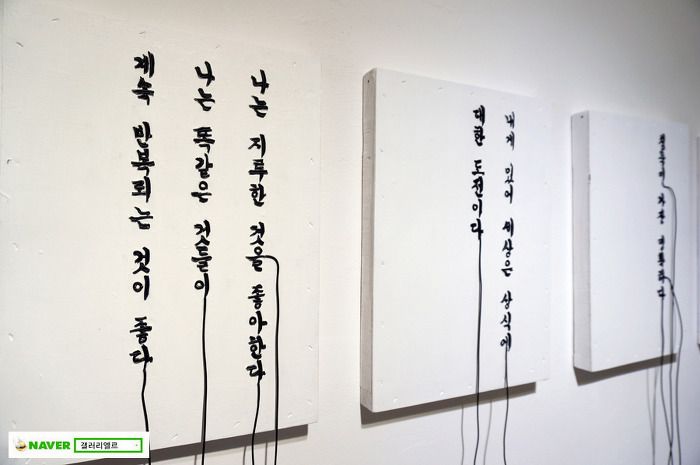 나는 지루한 것을 좋아한다
나는 똑같은 것들이
계속 반복되는 것이 좋다
내게 있어 세상은 상식에
대한 도전이다
가장
NAVER 갤러리엘르